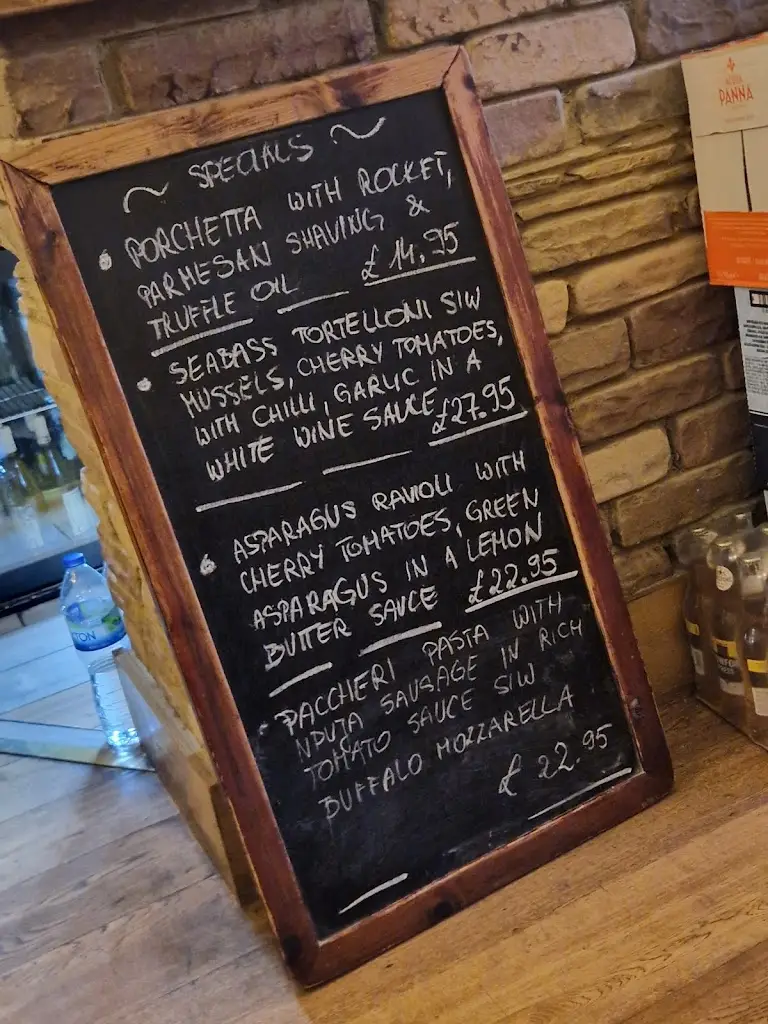 ~ SPECIALS ~
• PORCHETTA WITH ROCKET,
PARMESAN SHAVING &
TRUFFLE OIL £14.95
• SEABASS TORTELLONI S/W
MUSSELS, CHERRY TOMATOES,
WITH CHILLI, GARLIC IN A
WHITE WINE SAUCE £27.95
• ASPARAGUS RAVIOLI WITH
CHERRY TOMATOES, GREEN
ASPARAGUS IN A LEMON
BUTTER SAUCE £22.95
PACCHERI PASTA WITH
NDUJA SAUSAGE IN RICH
TOMATO SAUCE S/W
BUFFALO MOZZARELLA
£22.95
ACQUA
PANNA
TON